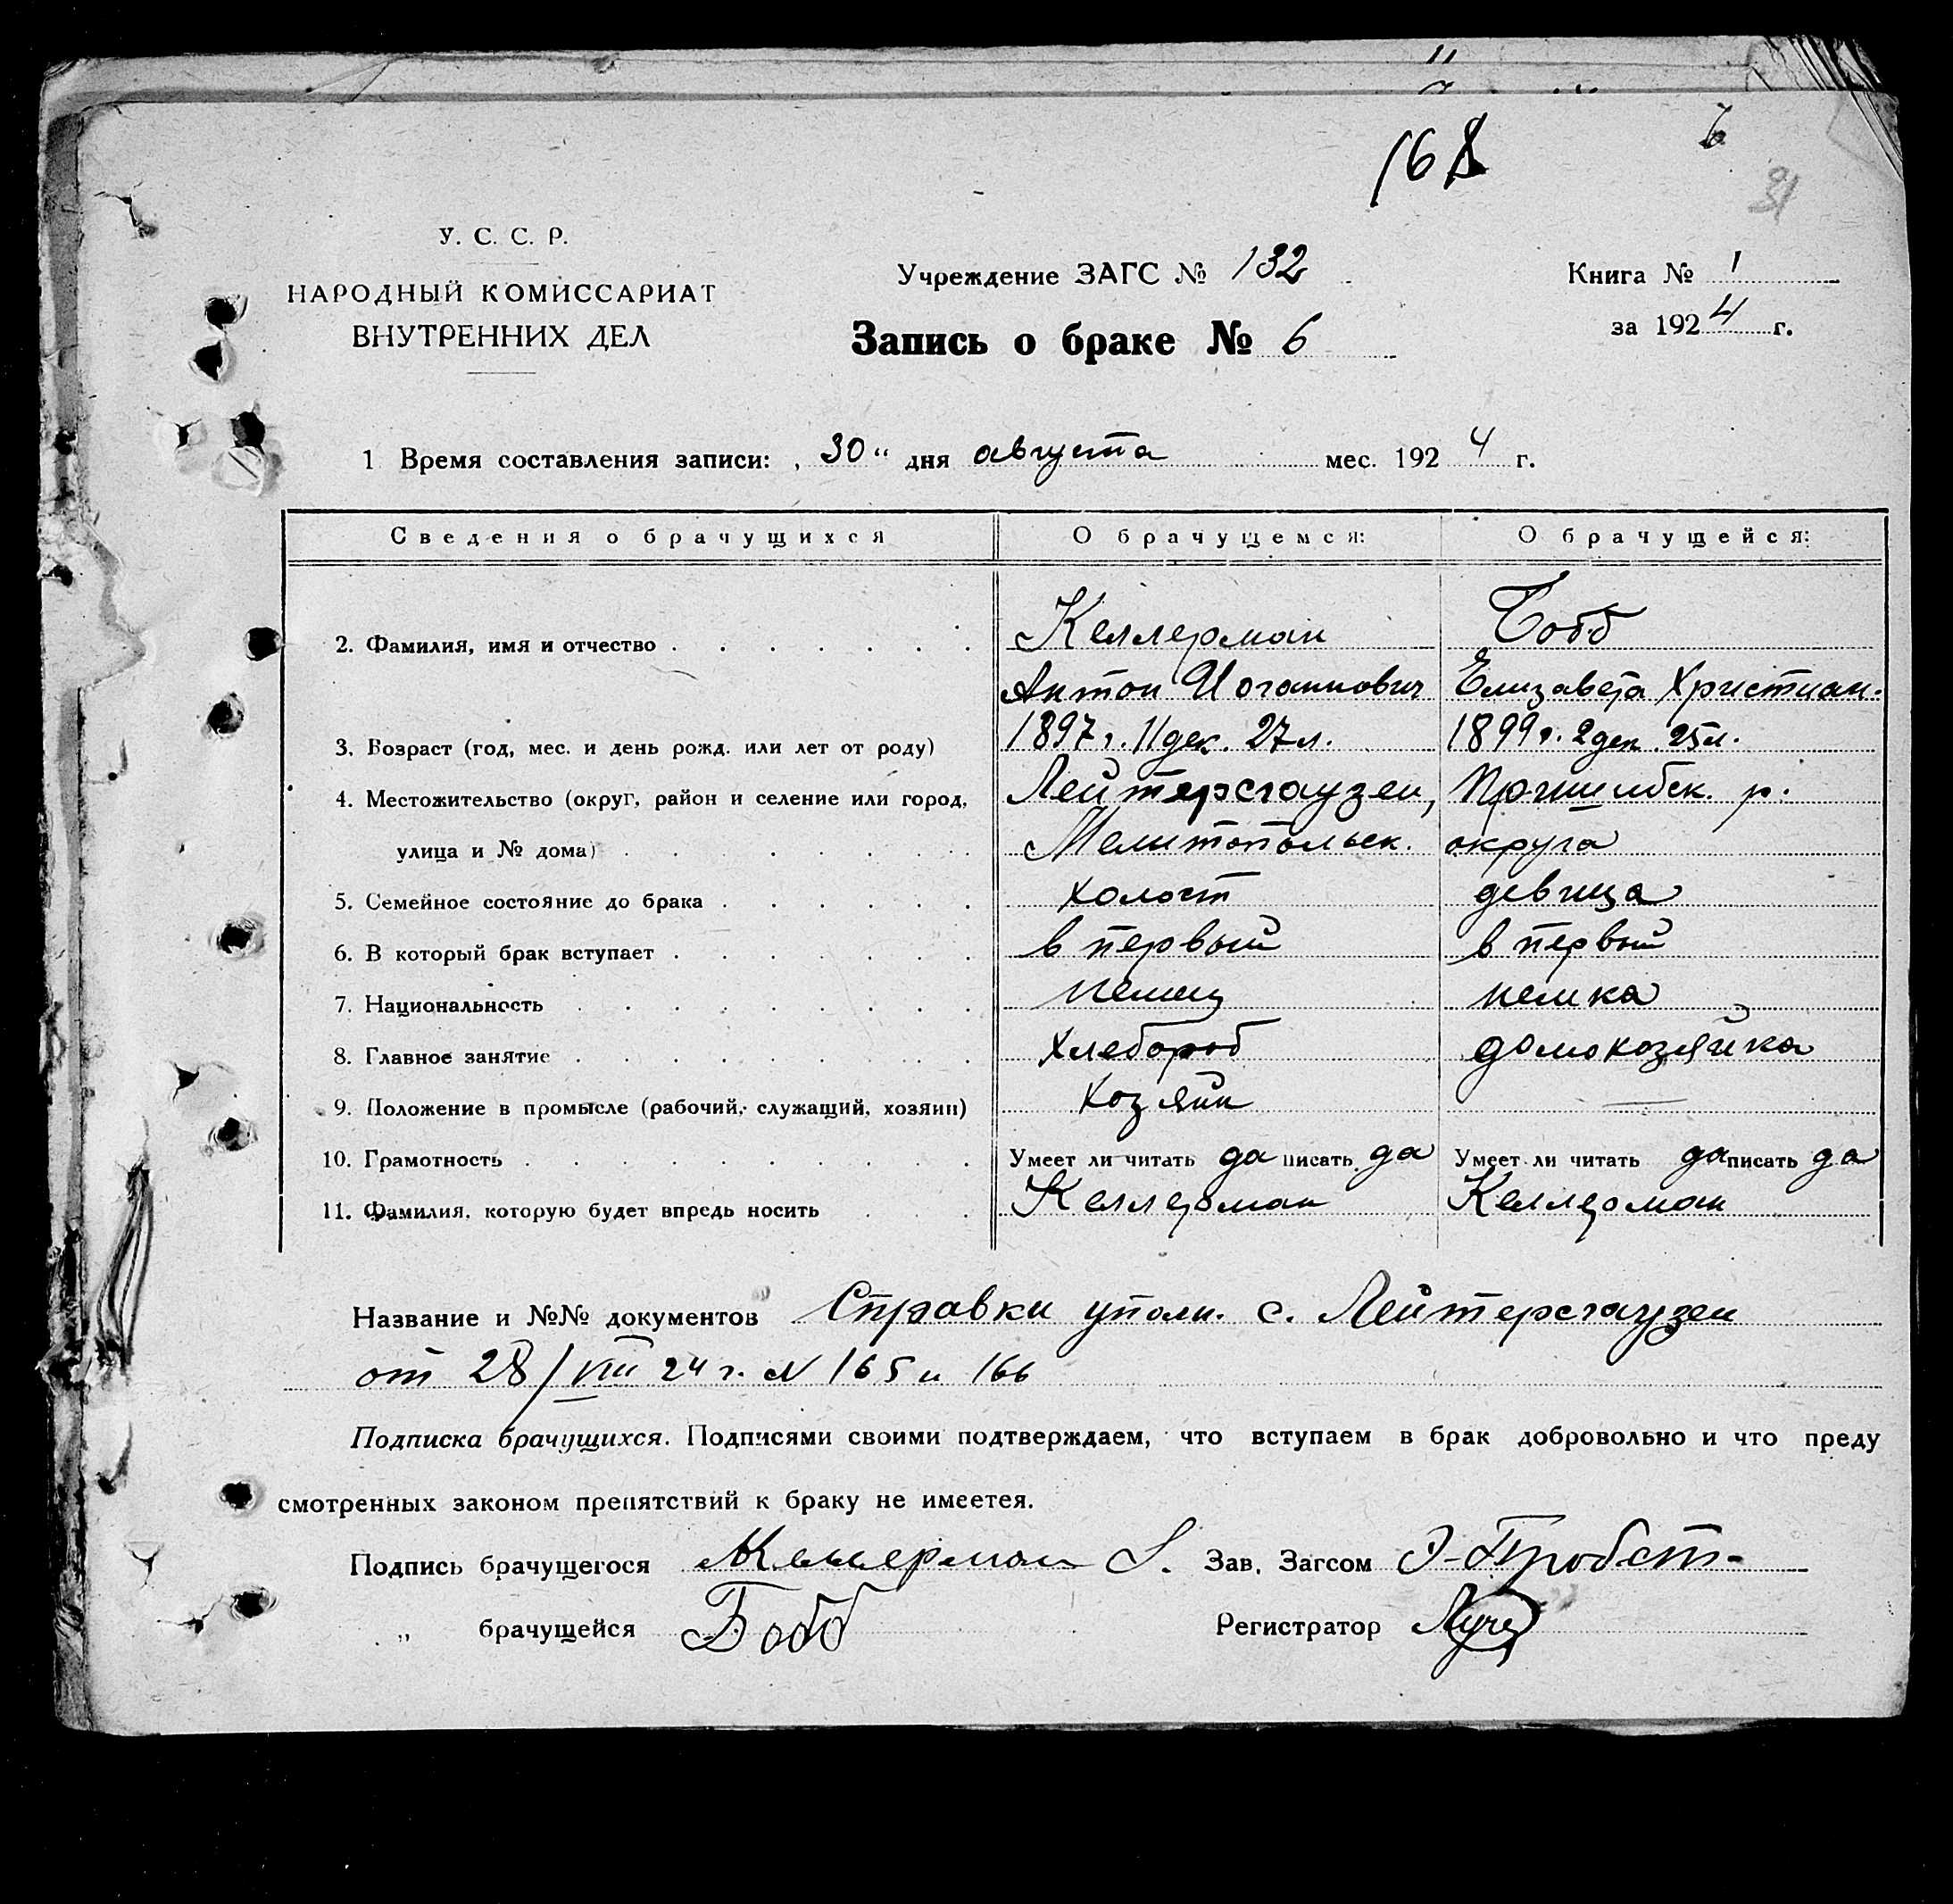 168
31
У. С. С. Р.
НАРОДНЫЙ КОМИССАРИАТ
ВНУТРЕННИХ ДЕЛ
Учреждение ЗАГС № 132
Книга № 1
за 1924 г.
Запись о браке № 6
1 Время составления записи: „30“ дня августа мес. 1924 г.
Сведения о брачущихся О брачущемся: О брачущейся:
2. Фамилия, имя и отчество Келлерман Бобб
Антон Иоганнович Елизавета Христиан.
3. Возраст (год, мес. и день рожд. или лет от роду) 1897 г. 11 дек. 27 л. 1899 г. 2 дек. 25 л.
4. Местожительство (округ, район и селение или город, Лейтерсгаузен, Пришибск. р.
улица и № дома) Мелитопольск. округа
5. Семейное состояние до брака холост девица
6. В который брак вступает в первый в первый
7. Национальность немец немка
8. Главное занятие хлебороб домохозяйка
9. Положение в промысле (рабочий, служащий, хозяин) хозяин —
10. Грамотность Умеет ли читать да писать да Умеет ли читать да писать да
11. Фамилия, которую будет впредь носить Келлерман Келлерман
Название и №№ документов Справки уполн. с. Лейтерсгаузен
от 28/VIII 24 г. N 165 и 166
Подписка брачущихся. Подписями своими подтверждаем, что вступаем в брак добровольно и что преду
смотренных законом препятствий к браку не имеется.
Подпись брачущегося Келлерман Зав. Загсом Э-Пробст-
„ брачущейся Бобб Регистратор